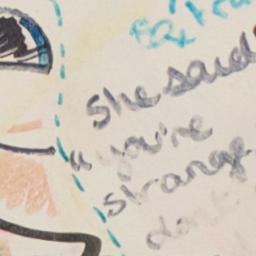 extra
she said
"you're
strange
don't